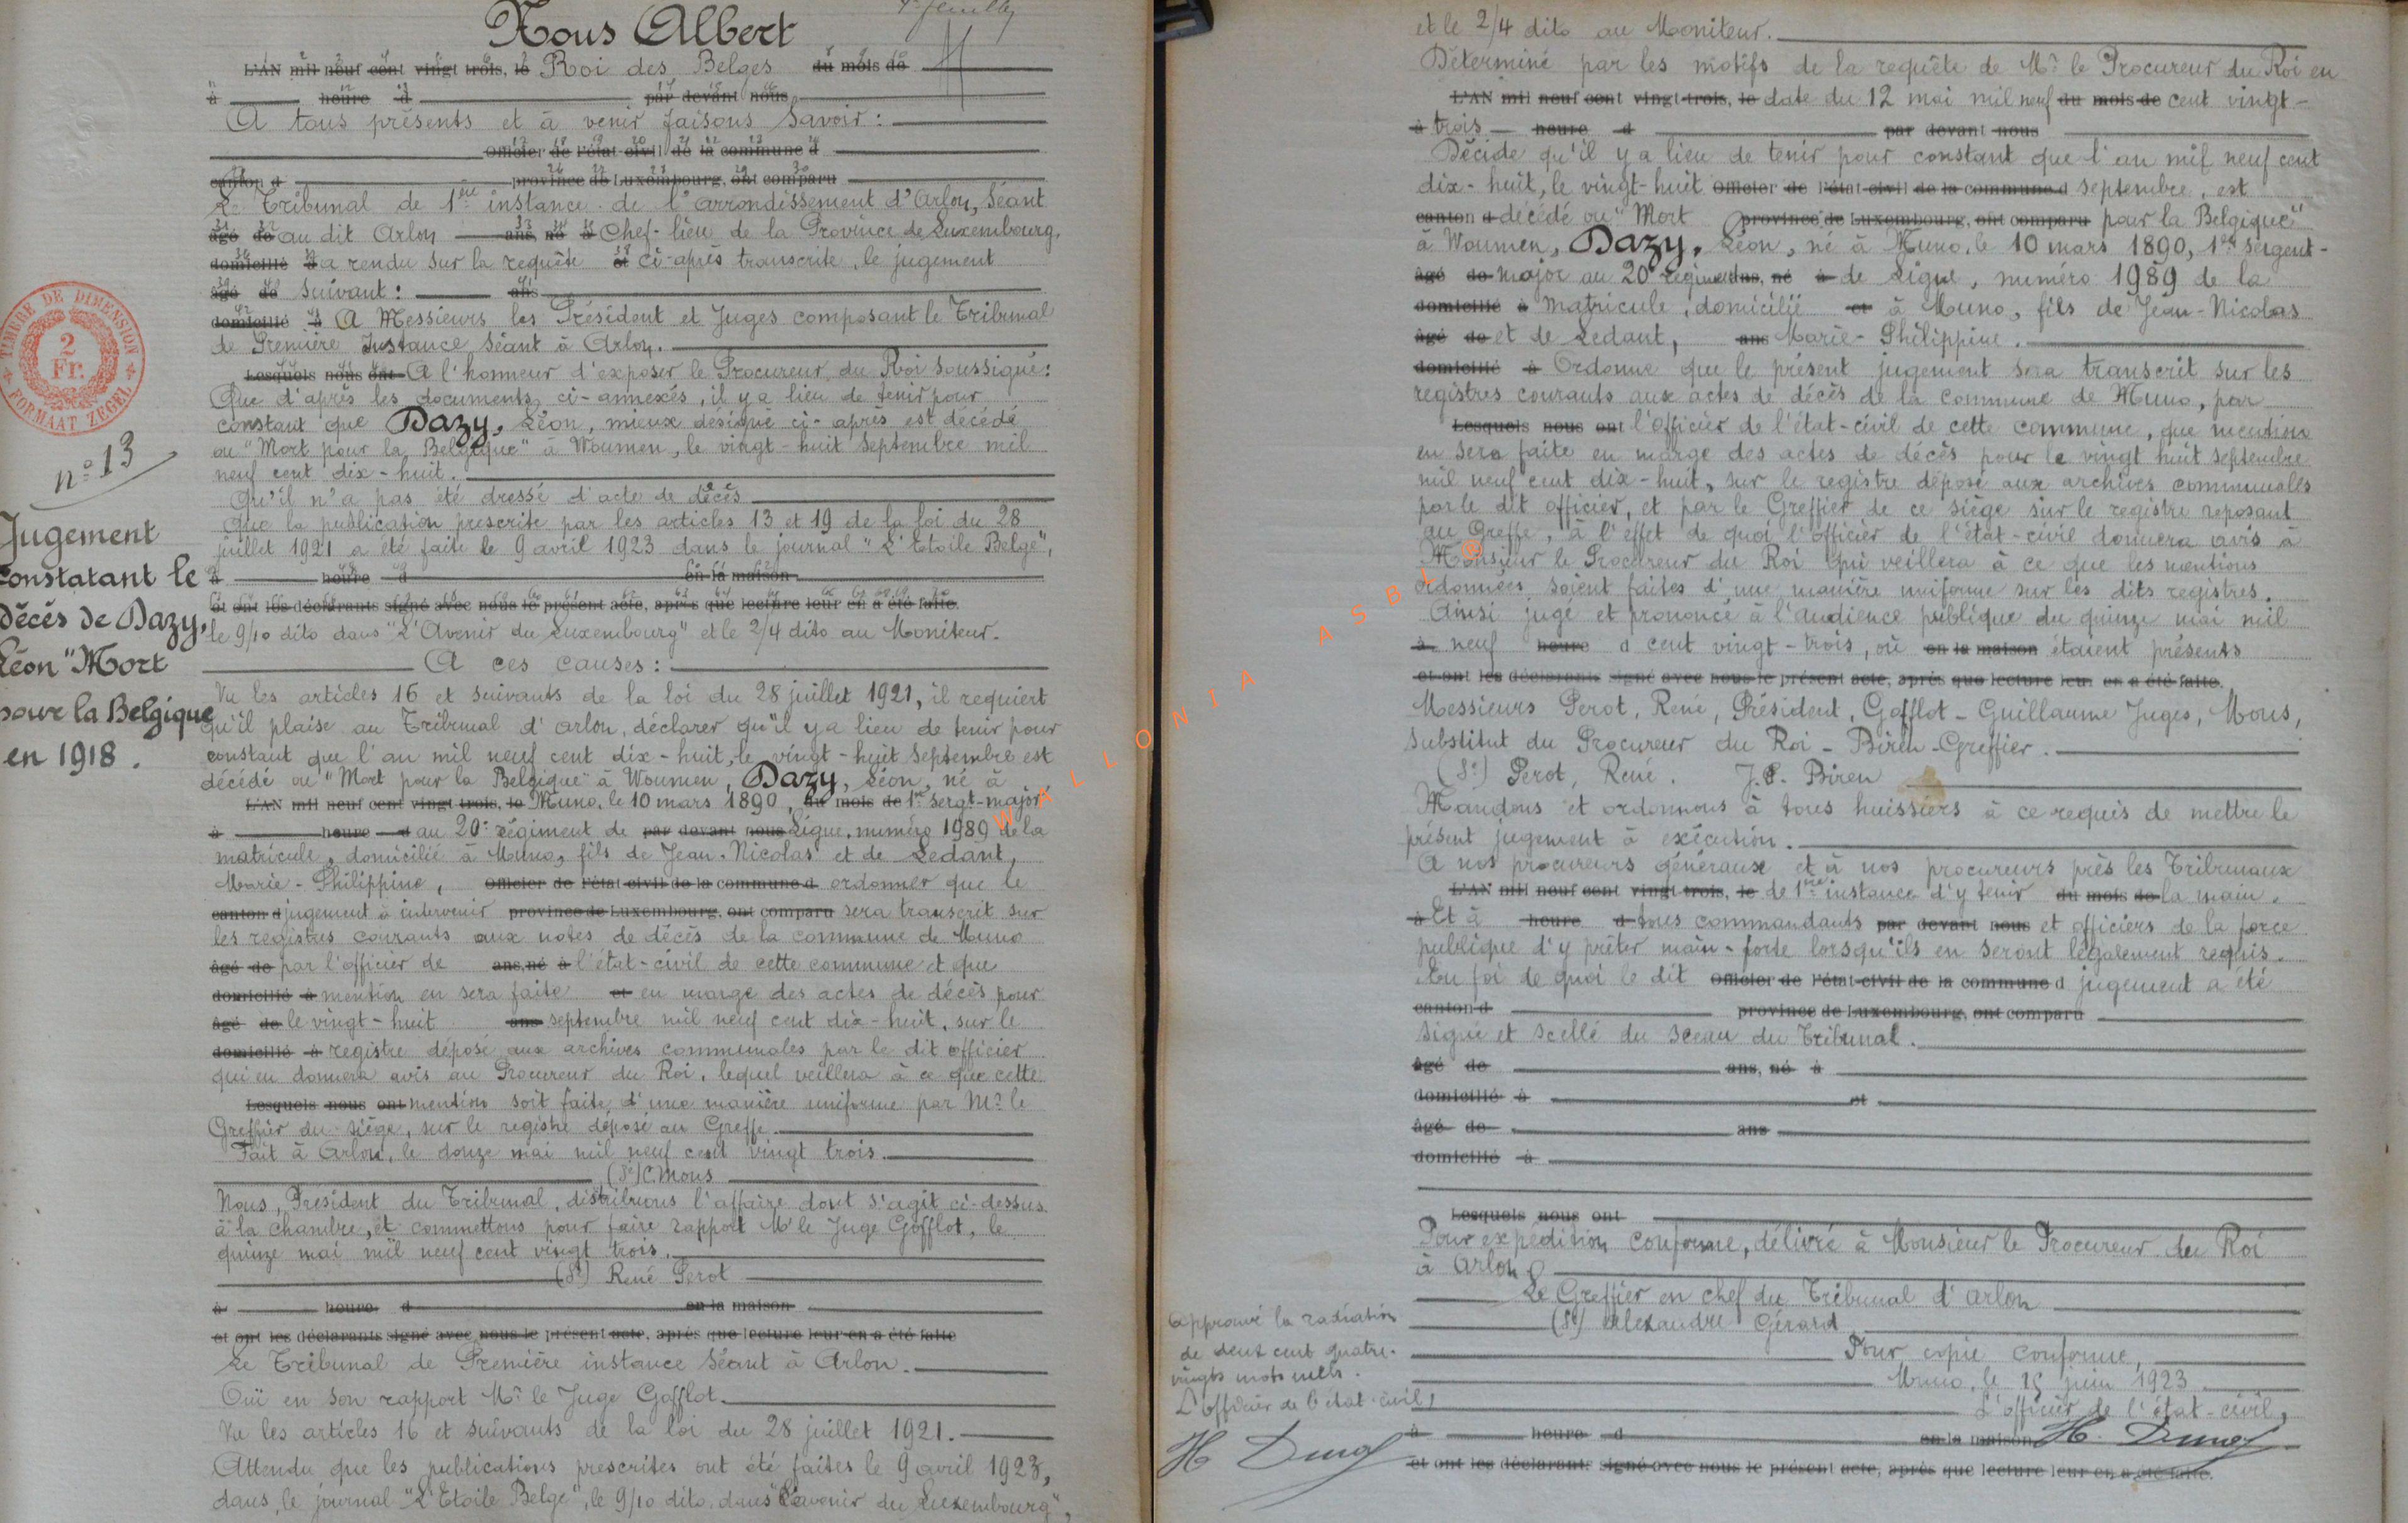 Nous Albert
L'AN mil neuf cent vingt trois, le Roi des Belges du mois de
à heure d par devant nous
A tous présents et à venir faisons savoir :
Officier de l'état civil de la commune d
canton d province de Luxembourg, ont comparu
Le Tribunal de 1ère instance de l'arrondissement d'Arlon, séant
âgé de au dit Arlon ans, né à Chef-lieu de la Province de Luxembourg,
domicilié à a rendu sur la requête et ci-après transcrite, le jugement
âgé de suivant : ans
domicilié à A Messieurs les Président et Juges composant le Tribunal
de Première Instance séant à Arlon.
Lesquels nous ont A l'honneur d'exposer le Procureur du Roi soussigné :
Que d'après les documents ci-annexés, il y a lieu de tenir pour
constant que Dazy, Léon, mieux désigné ci-après est décédé
ou "Mort pour la Belgique" à Woumen, le vingt-huit septembre mil
neuf cent dix-huit.
Qu'il n'a pas été dressé d'acte de décès
Que la publication prescrite par les articles 13 et 19 de la loi du 28
juillet 1921 a été faite le 9 avril 1923 dans le journal "L'Etoile Belge",
à heure d en la maison
et ont les déclarants signé avec nous le présent acte, après que lecture leur en a été faite.
le 9/10 dito dans "L'Avenir du Luxembourg" et le 2/4 dito au Moniteur.
A ces causes :
Vu les articles 16 et suivants de la loi du 28 juillet 1921, il requiert
qu'il plaise au Tribunal d'Arlon, déclarer qu'il y a lieu de tenir pour
constant que l'an mil neuf cent dix-huit, le vingt-huit septembre est
décédé ou "Mort pour la Belgique" à Woumen, Dazy, Léon, né à
L'AN mil neuf cent vingt trois, le Muno, le 10 mars 1890, du mois de 1er Sergt-major
à heure d au 20e régiment de par devant nous Ligne, numéro 1989 de la
matricule, domicilié à Muno, fils de Jean-Nicolas et de Ledant,
Marie-Philippine, Officier de l'état civil de la commune d ordonner que le
canton d jugement à intervenir province de Luxembourg, ont comparu sera transcrit sur
les registres courants aux notes de décès de la commune de Muno
âgé de par l'officier de ans, né à l'état-civil de cette commune et que
domicilié à mention en sera faite et en marge des actes de décès pour
âgé de le vingt-huit ans septembre mil neuf cent dix-huit, sur le
domicilié à registre déposé aux archives communales par le dit officier
qui en donnera avis au Procureur du Roi, lequel veillera à ce que cette
Lesquels nous ont mention soit faite d'une manière uniforme par Mr le
Greffier du siège, sur le registre déposé au Greffe.
Fait à Arlon, le douze mai mil neuf cent vingt trois.
(Sé) C. Mous
Nous, Président du Tribunal, distribuons l'affaire dont s'agit ci-dessus
à la chambre, et commettons pour faire rapport Mr le Juge Gofflot, le
quinze mai mil neuf cent vingt trois.
(Sé) René Perot
à heure d en la maison
et ont les déclarants signé avec nous le présent acte, après que lecture leur en a été faite
Le Tribunal de Première instance séant à Arlon.
Ouï en son rapport Mr le Juge Gofflot.
Vu les articles 16 et suivants de la loi du 28 juillet 1921.
Attendu que les publications prescrites ont été faites le 9 avril 1923,
dans le journal "L'Etoile Belge", le 9/10 dito, dans "L'avenir du Luxembourg",
TIMBRE DE DIMENSION
2
Fr.
FORMAAT ZEGEL
n° 13
Jugement
constatant le
décès de Dazy,
Léon "Mort
pour la Belgique
en 1918.
et le 2/4 dito au Moniteur.
Déterminé par les motifs de la requête de Mr le Procureur du Roi en
L'AN mil neuf cent vingt-trois, le date du 12 mai mil neuf du mois de cent vingt-
à trois heure d par devant nous
Décide qu'il y a lieu de tenir pour constant que l'an mil neuf cent
dix-huit, le vingt-huit Officier de l'état-civil de la commune d septembre, est
canton d décédé ou "Mort province de Luxembourg, ont comparu pour la Belgique"
à Woumen, Dazy, Léon, né à Muno, le 10 mars 1890, 1er sergent-
âgé de major au 20e Régiment ans, né à de Ligne, numéro 1989 de la
domicilié à matricule, domicilié et à Muno, fils de Jean-Nicolas
âgé de et de Ledant, ans Marie-Philippine.
domicilié à Ordonne que le présent jugement sera transcrit sur les
registres courants aux actes de décès de la commune de Muno, par
Lesquels nous ont l'officier de l'état-civil de cette commune, que mention
en sera faite en marge des actes de décès pour le vingt huit septembre
mil neuf cent dix-huit, sur le registre déposé aux archives communales
par le dit officier, et par le Greffier de ce siège sur le registre reposant
au Greffe, à l'effet de quoi l'officier de l'état-civil donnera avis à
Monsieur le Procureur du Roi qui veillera à ce que les mentions
ordonnées soient faites d'une manière uniforme sur les dits registres.
Ainsi jugé et prononcé à l'audience publique du quinze mai mil
à neuf heure d cent vingt-trois, où en la maison étaient présents
et ont les déclarants signé avec nous le présent acte, après que lecture leur en a été faite.
Messieurs Perot, René, Président, Gofflot - Guillaume Juges, Mous,
Substitut du Procureur du Roi - Biren - Greffier.
(Sé) Perot, René. J.P. Biren
Mandons et ordonnons à tous huissiers à ce requis de mettre le
présent jugement à exécution.
A nos procureurs généraux et à nos procureurs près les Tribunaux
L'AN mil neuf cent vingt-trois, le de 1ère instance d'y tenir du mois de la main.
à Et à heure d tous commandants par devant nous et officiers de la force
publique d'y prêter main-forte lorsqu'ils en seront légalement requis.
En foi de quoi le dit Officier de l'état-civil de la commune d jugement a été
canton d province de Luxembourg, ont comparu
signé et scellé du sceau du Tribunal.
âgé de ans, né à
domicilié à et
âgé de ans
domicilié à
Lesquels nous ont
Pour expédition conforme, délivré à Monsieur le Procureur du Roi
à Arlon
Le Greffier en chef du Tribunal d'Arlon
(Sé) Alexandre Gérard
Pour copie conforme,
Muno, le 15 juin 1923
L'officier de l'état-civil,
à heure d en la maison
et ont les déclarants signé avec nous le présent acte, après que lecture leur en a été faite.
Approuvé la radiation
de deux cent quatre-
vingts mots nuls.
L'officier de l'état-civil,
WALLONIA ASBL